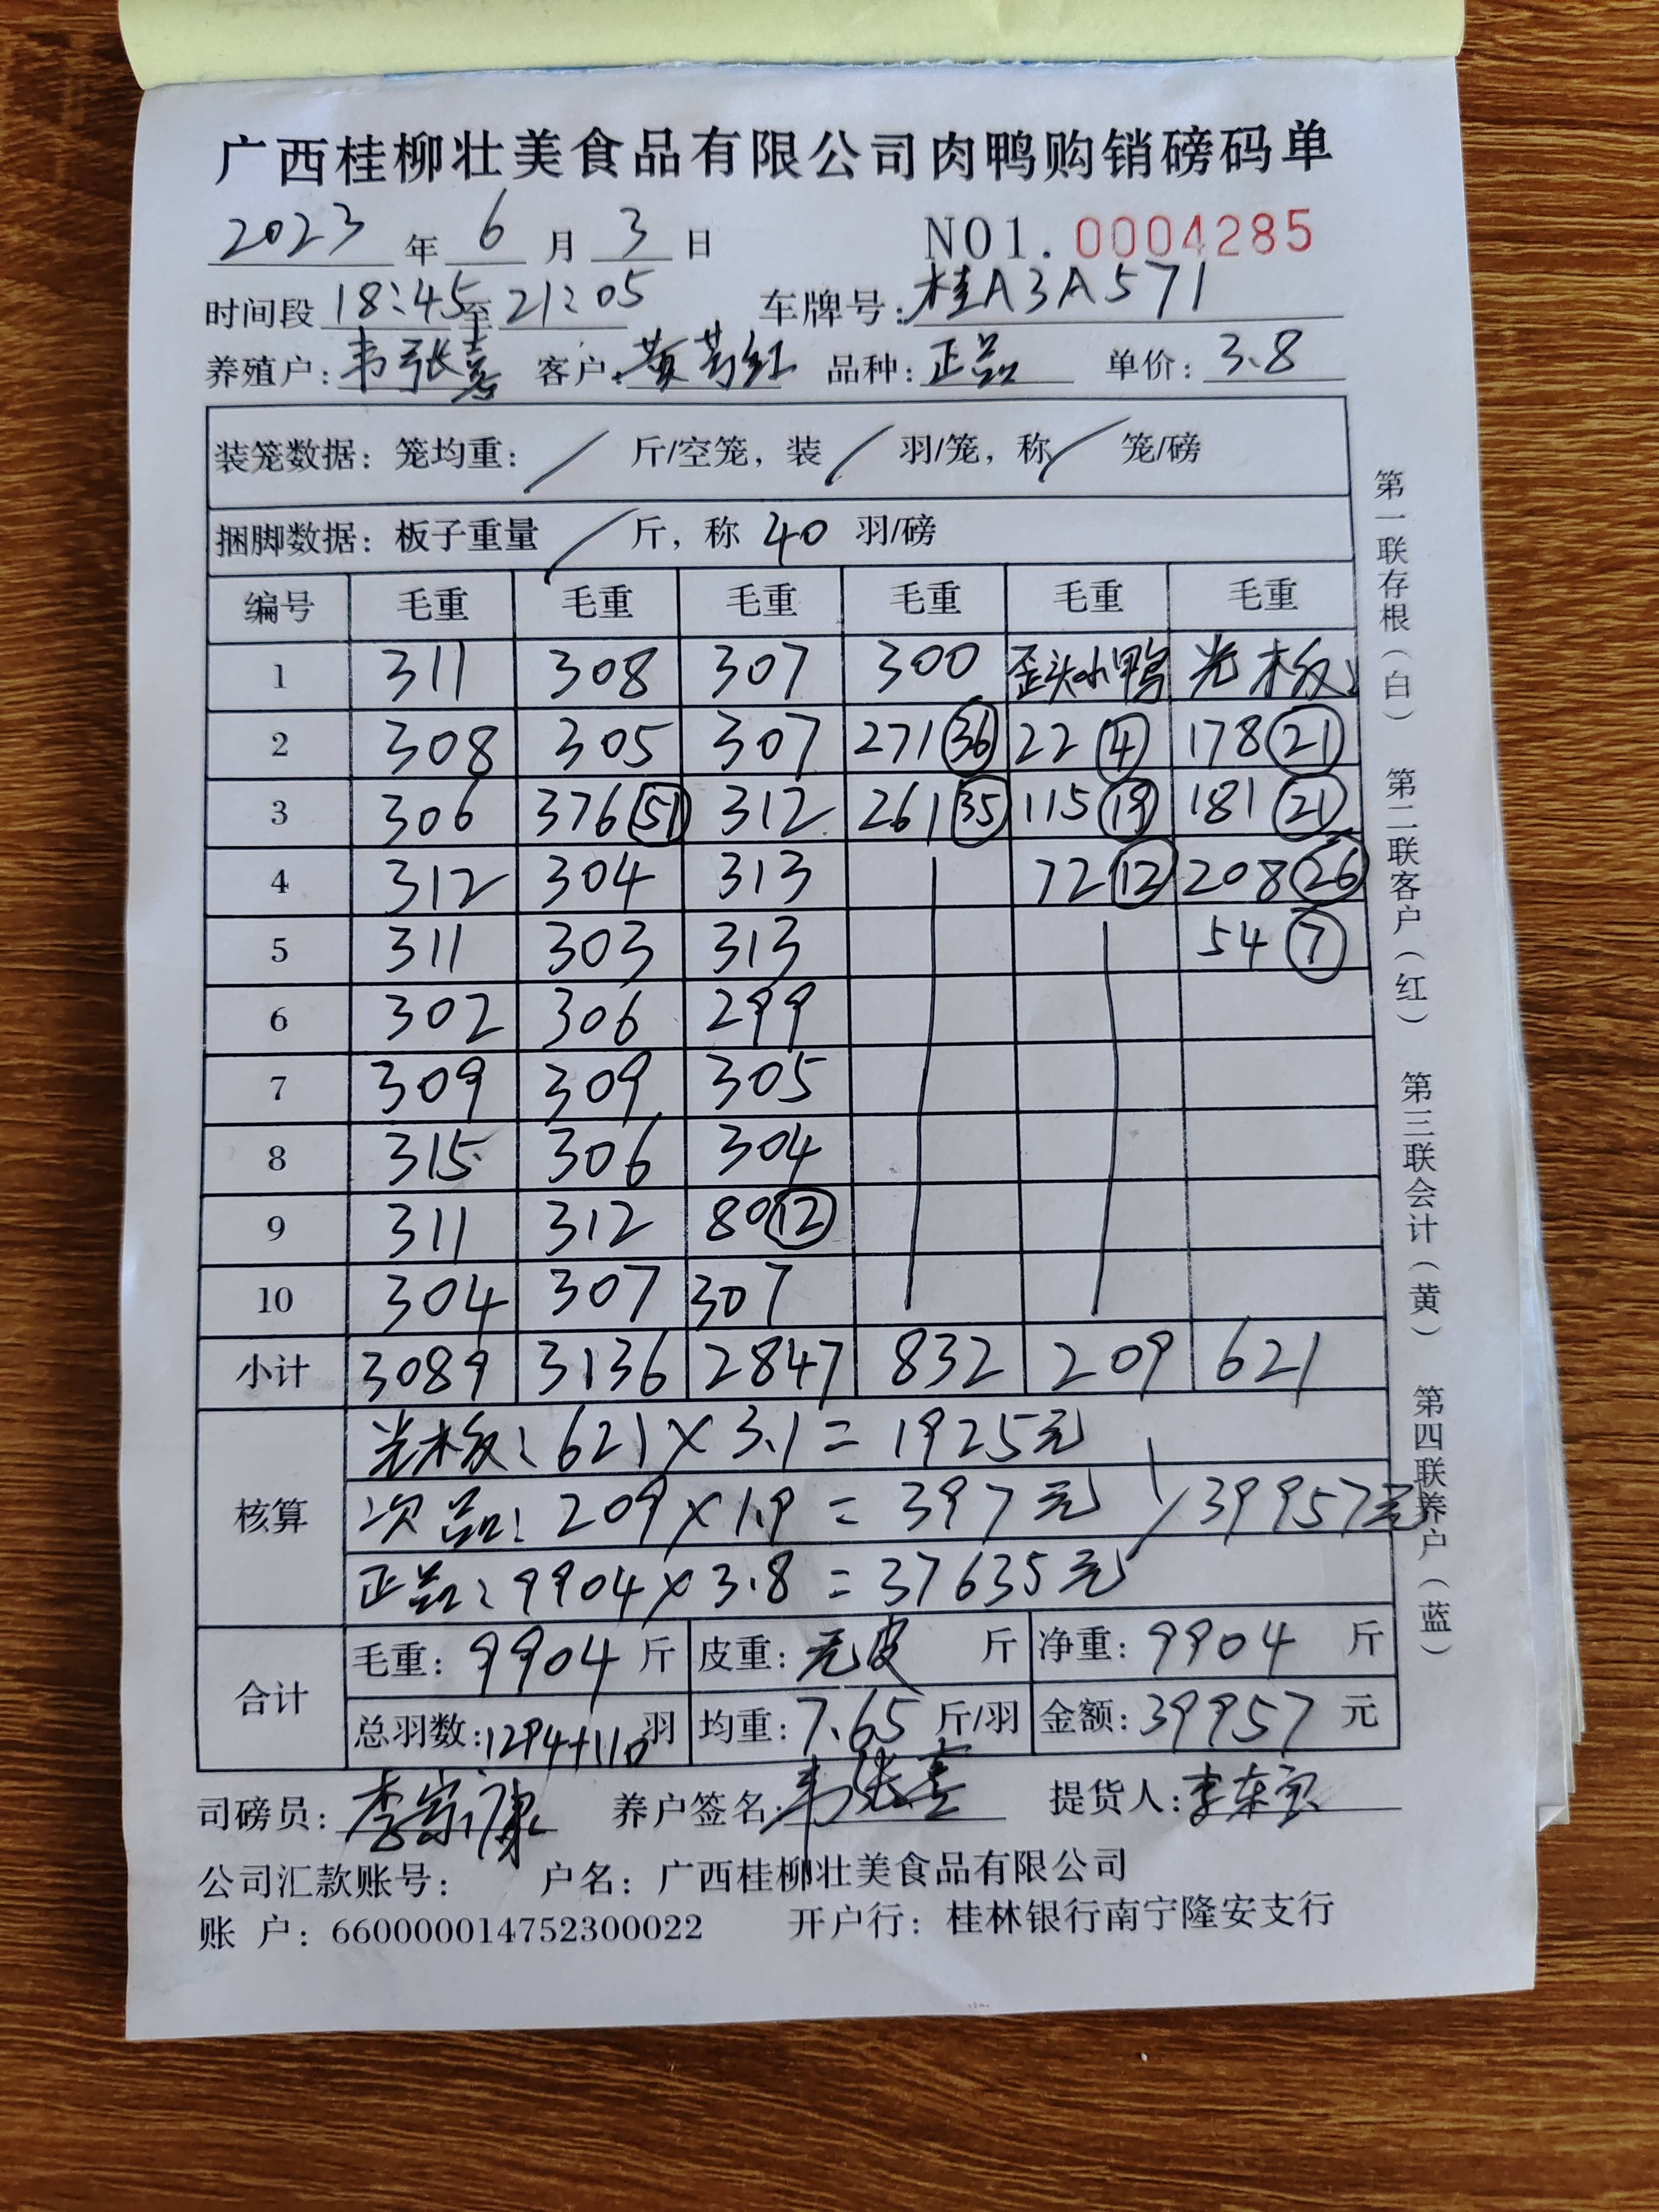 广西桂柳壮美食品有限公司肉鸭购销磅码单
2023年6月3日 NO1.0004285
时间段18:45至21:05 车牌号:桂A3A571
养殖户:韦张喜 客户:黄芳红 品种:正品 单价:3.8
装笼数据:笼均重:/斤/空笼,装/羽/笼,称/笼/磅
捆脚数据:板子重量/斤,称40羽/磅
编号 毛重 毛重 毛重 毛重 毛重 毛重
1 311 308 307 300 歪头小鸭 光板:
2 308 305 307 271(36) 22(4) 178(21)
3 306 376(51) 312 261(35) 115(19) 181(21)
4 312 304 313 72(12) 208(26)
5 311 303 313 54(7)
6 302 306 299
7 309 309 305
8 315 306 304
9 311 312 80(12)
10 304 307 307
小计 3089 3136 2847 832 209 621
核算
光板:621×3.1=1925元
次品:209×1.9=397元 39957元
正品:9904×3.8=37635元
合计
毛重:9904斤 皮重:无皮斤 净重:9904斤
总羽数:1294+110羽 均重:7.65斤/羽 金额:39957元
司磅员: 养户签名:韦张喜 提货人:李东宝
公司汇款账号: 户名:广西桂柳壮美食品有限公司
账户:660000014752300022 开户行:桂林银行南宁隆安支行
第一联存根(白) 第二联客户(红) 第三联会计(黄) 第四联养户(蓝)